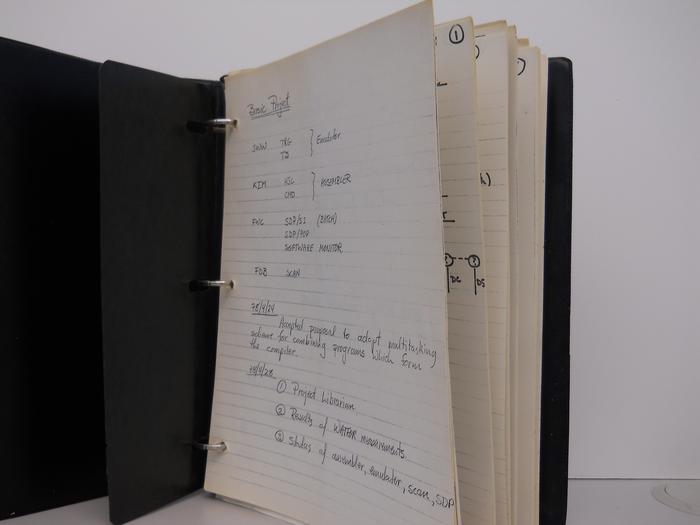 Basic Project
JWW TRG } Emulator
TD
KIM } ASSEMBLER
CMD
FWC SDP/SI (BATCH)
SDP/PDP
SOFTWARE MONITOR
FDB SCAN
78/4/24
Accepted proposal to adopt multitasking
scheme for combining programs which form
the compiler.
78/4/28
① Project Librarian
② Results of WATFOR measurements.
③ Status of assembler, emulator, scan, SDP
①
DC DS